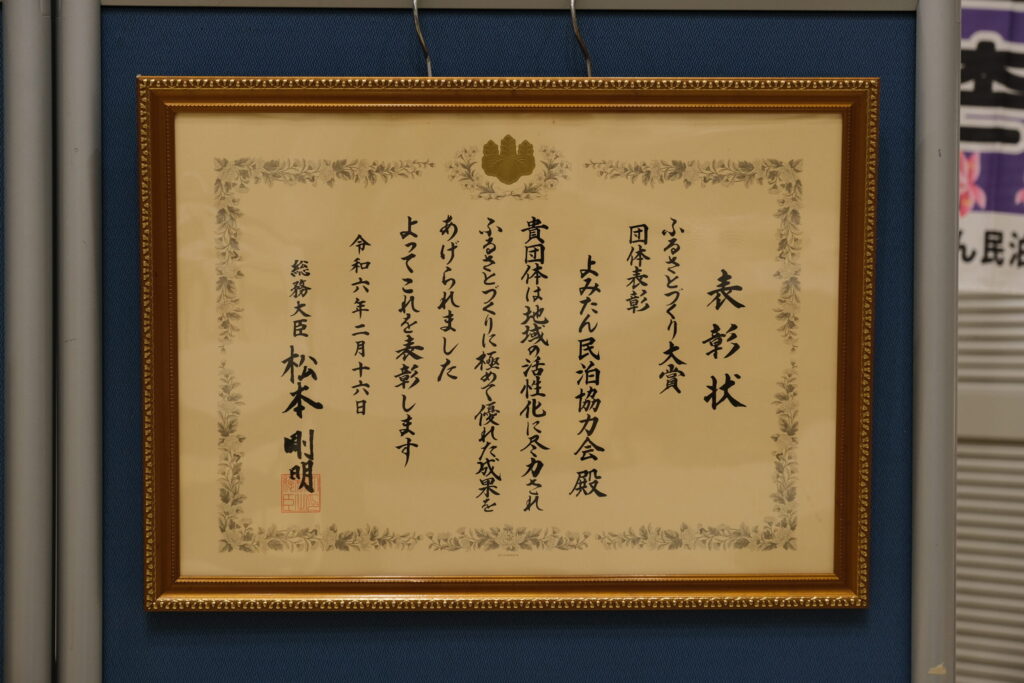 表彰状
ふるさとづくり大賞
団体表彰
よみたん民泊協力会 殿
貴団体は地域の活性化に尽力され
ふるさとづくりに極めて優れた成果を
あげられました
よってこれを表彰します
令和六年二月十六日
総務大臣 松本剛明
ん民泊